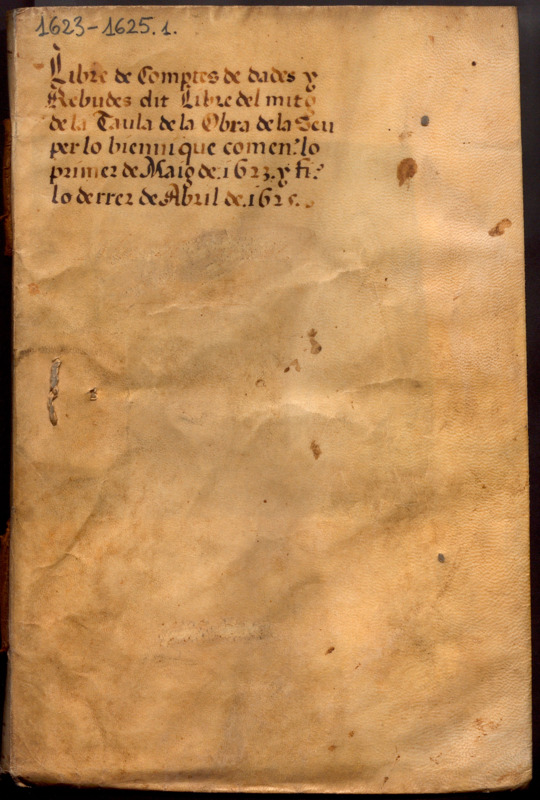 1623-1625. 1.
Libre de Comptes de dades y
Rebudes dit Libre del mitg
de la Taula de la Obra de la Seu
per lo bienni que comen.ꝰ lo
primer de Maig de .1623. y fi.ꝰ
lo derrer de Abril de .1625.